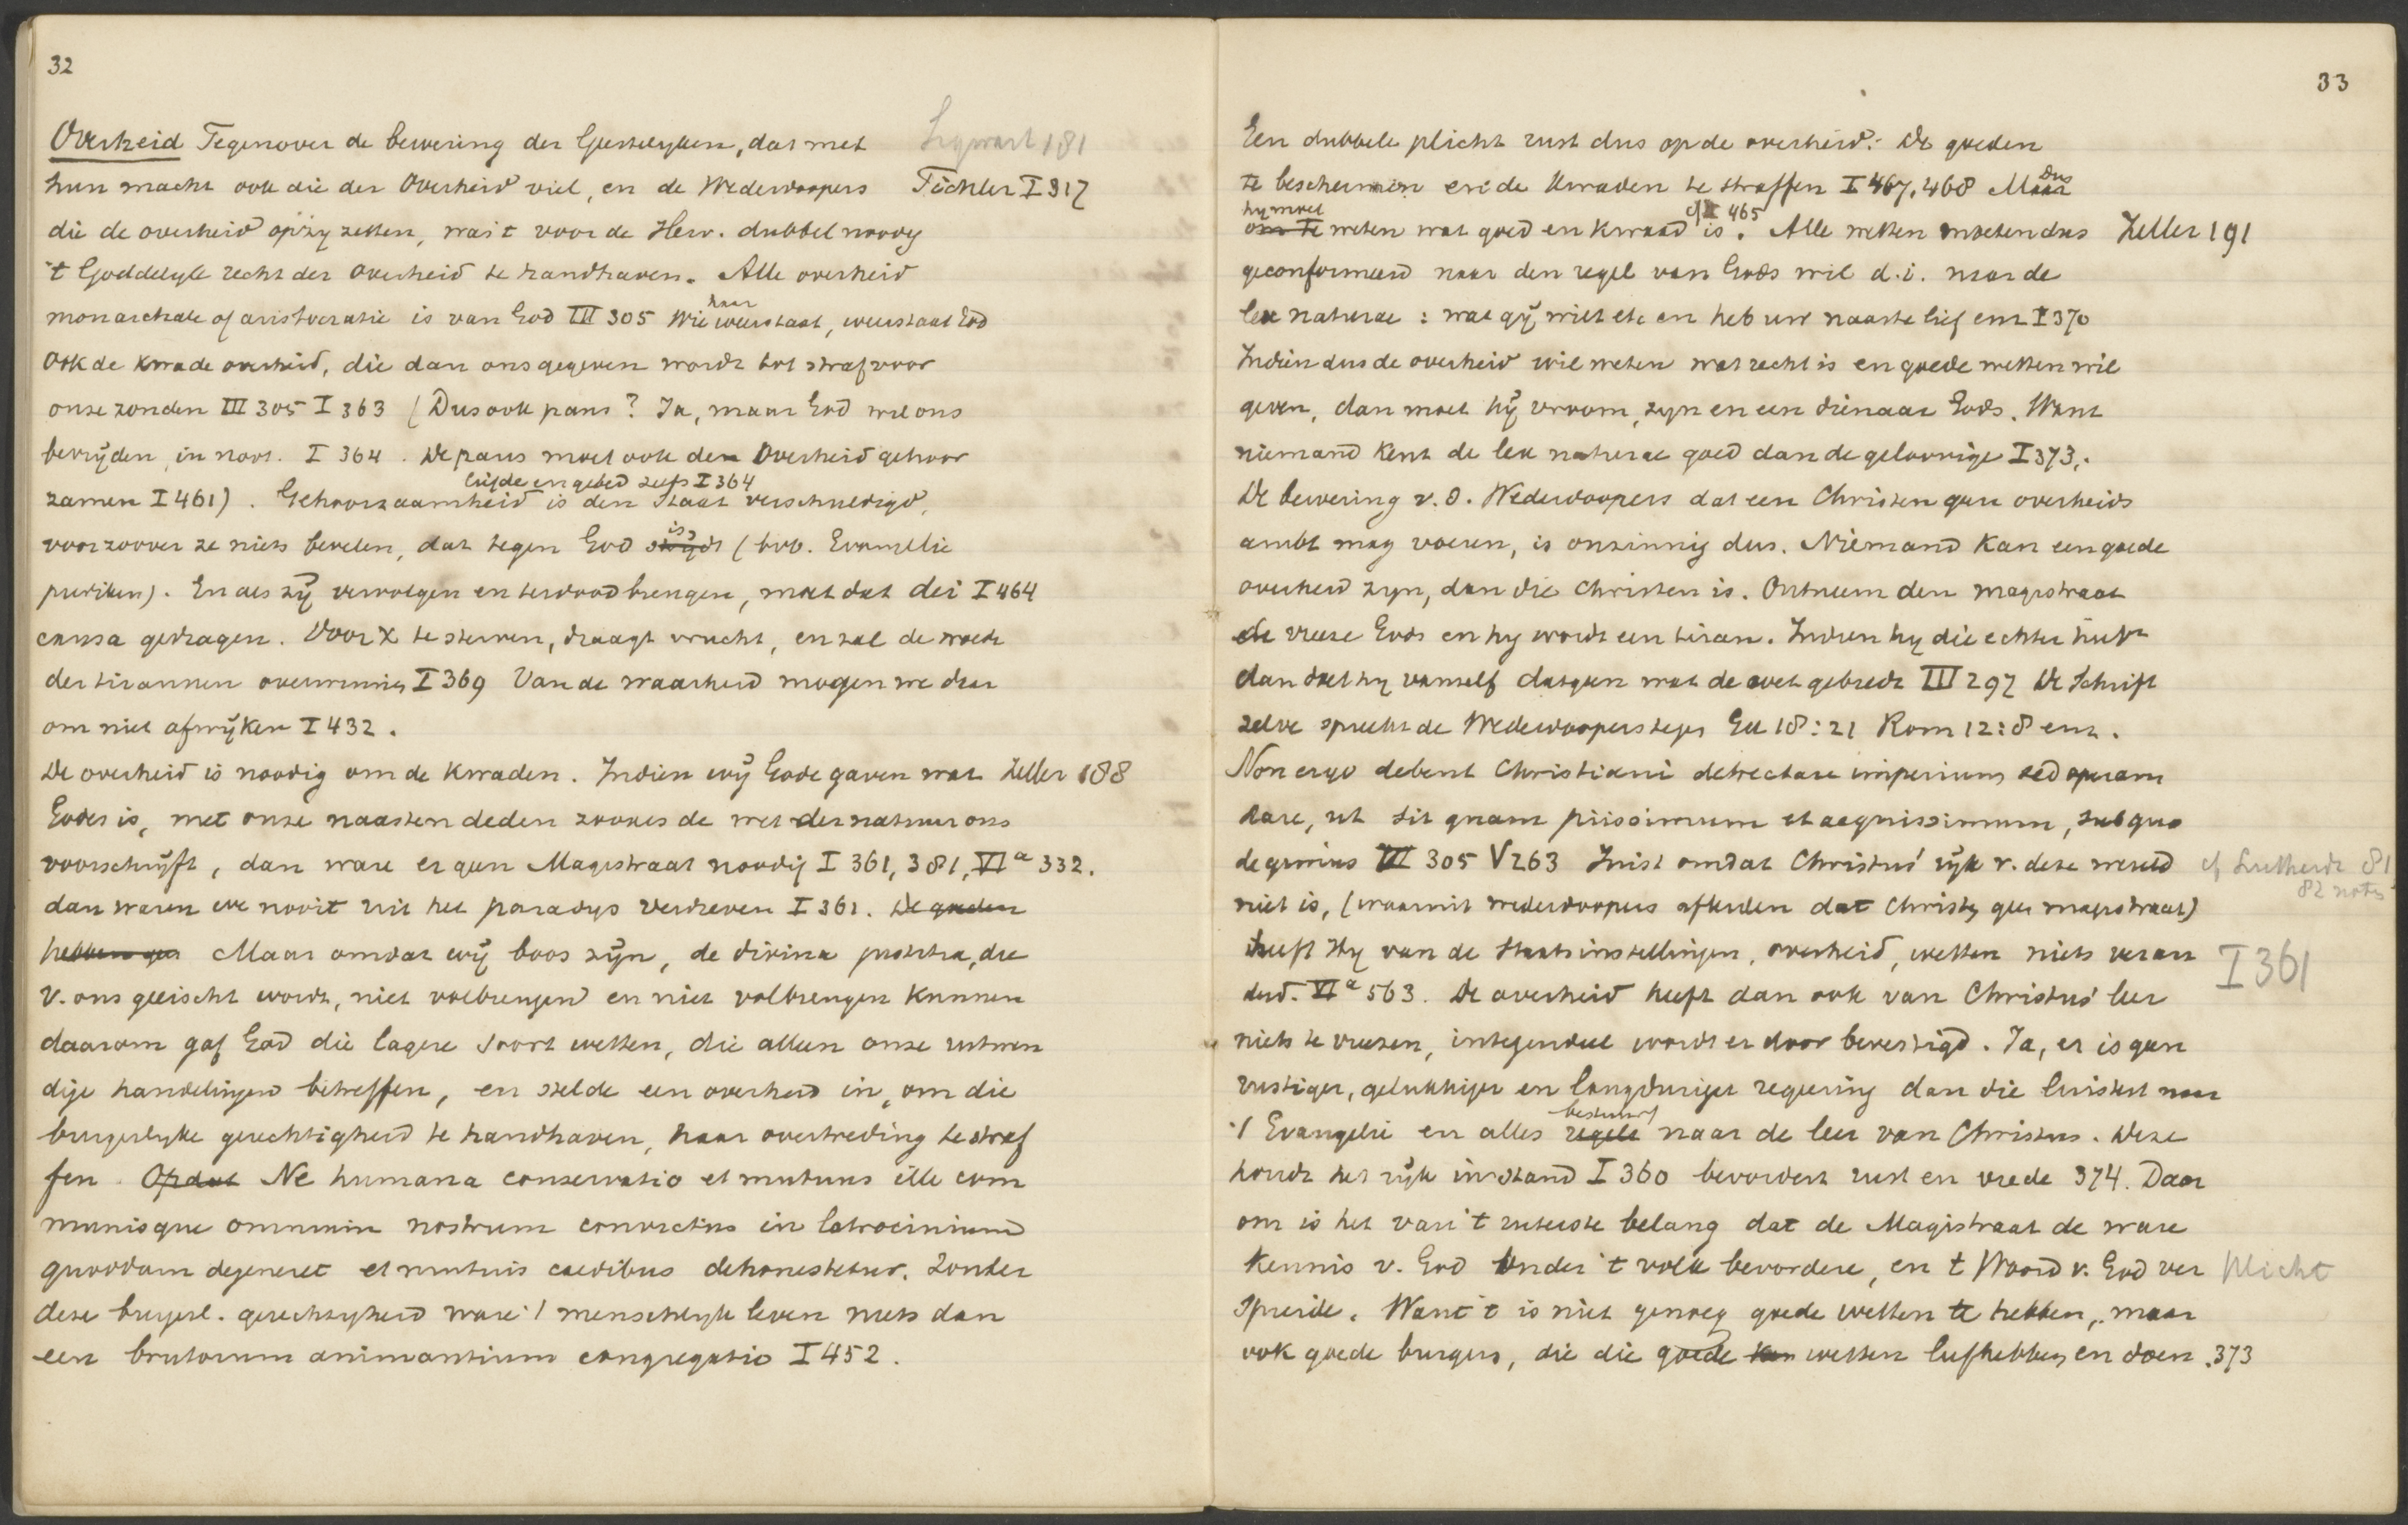 32
Overheid Tegenover de bewering der Geestelyken, dat met Sigwart 181
hun macht ook die der Overheid viel, en de Wederdoopers Tichler I 317
die de overheid opzy zetten, was 't voor de Herv. dubbel noodig
't Goddelyk recht der Overheid te handhaven. Alle overheid
monarchale of aristocratie is van God III 305 Wie haar weerstaat, weerstaat God
Ook de kwade overheid, die dan ons gegeven wordt tot straf voor
onze zonden III 305 I 363 (Dus ook paus? Ja, maar God wil ons
bevrijden, in noot. I 364. De paus moet ook den Overheid gehoor
liefde en gebed zelfs I 364
zamen I 461). Gehoorzaamheid is den Staat verschuldigd,
voorzoover ze niets bevelen, dat tegen God is (bvb. Evangelie
prediken). En als zij vervolgen en ter dood brengen, moet dat dei I 464
causa gedragen. Voor X te sterven, draagt vrucht, en zal de woede
der tirannen overwinnen I 369 Van de waarheid mogen we daar
om niet afwijken I 432.
De overheid is noodig om de kwaden. Indien wij Gode gaven wat Zeller 188
Godes is, met onze naasten deden zooals de wet der natuur ons
voorschrijft, dan ware er geen Magistraat noodig I 361, 381, VI a 332.
dan waren we nooit uit het paradys verdreven I 361. De goeden
hebben geen Maar omdat wij boos zijn, de divina justitia, die
v. ons geeischt wordt, niet volbrengen en niet volbrengen kunnen
daarom gaf God die lagere soort wetten, die alleen onze uitwen
dige handelingen betreffen, en stelde een overheid in, om die
burgerlyke gerechtigheid te handhaven, haar overtreding te straf
fen. Opdat Ne humana conservatio et mutuus ille com
munisque omnium nostrum convictus in latrocinium
quoddam degeneret et mutuis caedibus dehonestetur. Zonder
deze burgerl. gerechtigheid ware 't menschlyk leven niets dan
een brutorum animantium congregatio I 452.
33
Een dubbele plicht rust dus op de overheid: De goeden
te beschermen en de kwaden te straffen I 467, 468 Maar Dus
hy moet cf I 465
om te weten wat goed en kwaad is. Alle wetten moeten dus Zeller 191
geconformeerd naar den regel van Gods wil d.i. naar de
lex naturae: wat gij wilt etc en heb uw naaste lief enz I 370
Indien dus de overheid wil weten wat recht is en goede wetten wil
geven, dan moet hij vroom zyn en een dienaar Gods. Want
niemand kent de lex naturae goed dan de geloovige I 373,.
De bewering v. d. Wederdoopers dat een Christen geen overheids
ambt mag voeren, is onzinnig dus. Niemand kan een goede
overheid zyn, dan die Christen is. Ontneem den magistraat
de vreeze Gods en hy wordt een tiran. Indien hy die echter heeft
dan doet hy vanself datgeen wat de wet gebiedt III 297 De Schrift
zelve spreekt de Wederdoopers tegen Ex 18:21 Rom 12:8 enz.
Non ergo debent Christiani detrectare imperium sed operam
dare, ut sit quam piissimum et aequissimum, sub quo
degimus III 305 V 263 Juist omdat Christus' rijk v. deze wereld cf Lutherdt 81
82 noten
niet is, (waaruit wederdoopers afleiden dat Christen geen magistraat)
heeft Hy van de Staatsinstellingen, overheid, wetten niets veran I 361
derd. VI a 563. De overheid heeft dan ook van Christus' leer
niets te vreezen, integendeel wordt er door bevestigd. Ja, er is geen
rustiger, gelukkiger en langduriger regeering dan die luistert naar
bestuurt
't Evangelie en alles regelt naar de leer van Christus. Deze
houdt het rijk in stand I 360 bevordert rust en vrede 374. Daar
om is het van 't uiterste belang dat de Magistraat de ware
kennis v. God onder 't volk bevordere, en 't Woord v. God ver plicht
spreide. Want 't is niet genoeg goede wetten te hebben, maar
ook goede burgers, die die goede wetten liefhebben en doen. 373